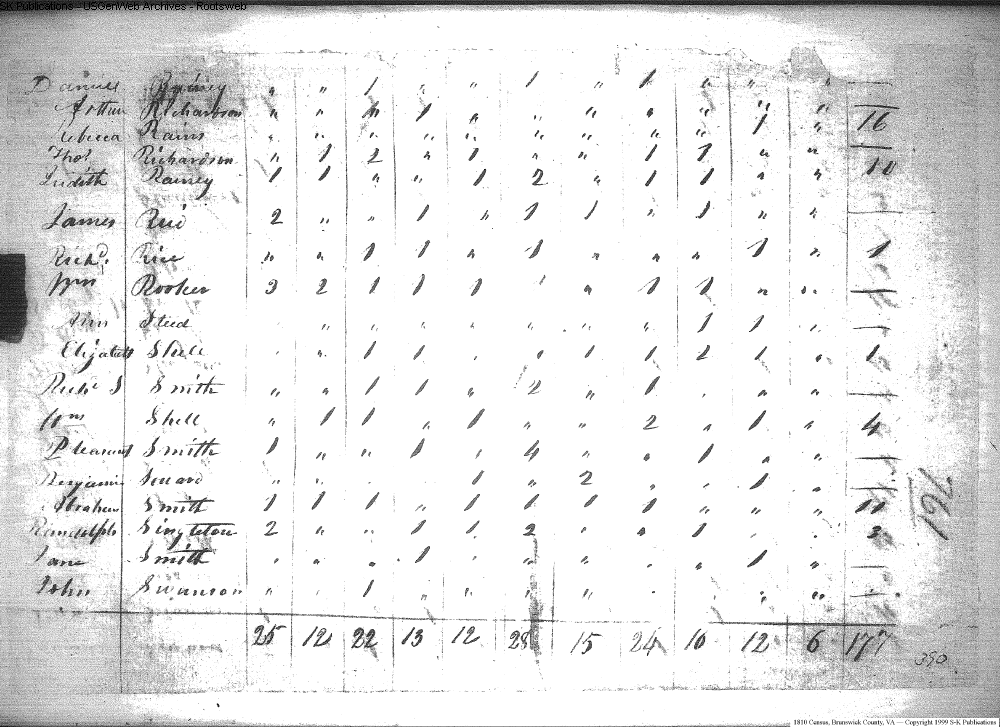 S-K Publications - USGenWeb Archives - Rootsweb
Daniel " " 1 " " 1 " 1 " " " —
Richardson " " " 1 " " " " " " " 16
Rebecca Rains " " " " " " " " " 1 " —
Thos Richardson " 1 2 " 1 " " 1 1 " " 10
Judith Rainey 1 1 " " 1 2 " 1 1 " "
James 2 " " 1 " 1 1 " 1 " " —
Richd. Rice " " 1 1 " 1 " " " 1 " 1
Wm Rooker 3 2 1 1 1 " " 1 1 " " —
Steed " " " " " " " " 1 1 " —
Elizabeth Shell " " 1 1 " " 1 1 2 1 " 1
Richd S Smith " " 1 1 " 2 " 1 " " " —
Wm Shell " 1 1 " 1 " " 2 " 1 " 4
Pleasant Smith 1 " " 1 " 4 " " 1 " " —
Benjamin " " 1 " 2 " " 1 " —
Abraham Smith 1 1 1 " 1 1 1 1 1 " " 11
Randolph Singleton 2 " " 1 1 2 " " 1 " " 3
Jane Smith " " " 1 " " " " " 1 " —
John Swanson " " 1 " " " " " " " " —
25 12 22 13 12 28 15 24 16 12 6 177
761
390
1810 Census, Brunswick County, VA — Copyright 1999 S-K Publications